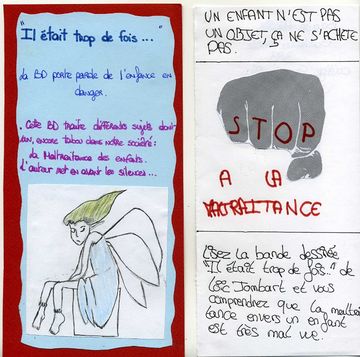 "Il était trop de fois..."
La BD porte parole de l'enfance en
danger.
. Cette BD traite différents sujets dont
un, encore tabou dans notre société:
la Maltraitance des enfants.
L'auteur met en avant les silences...
UN ENFANT N'EST PAS
UN OBJET, ÇA NE S'ACHETE
PAS.
STOP
A LA
MALTRAITANCE
Lisez la bande dessinée
"Il était trop de fois..." de
Loïc Jombart et vous
comprendrez que la maltrai
tance envers un enfant
est très mal vue.